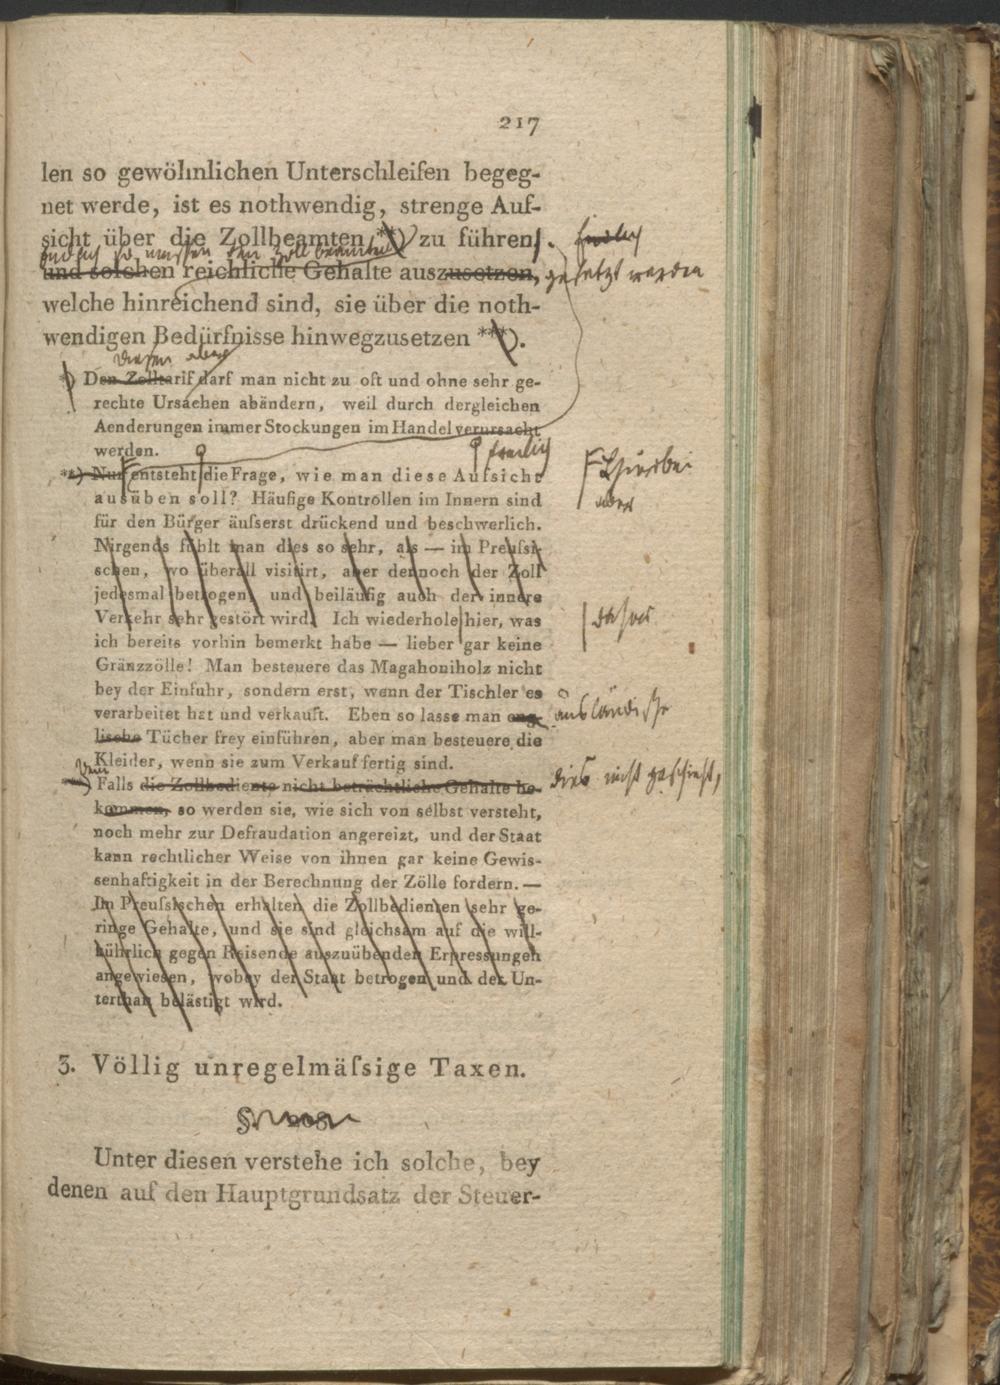 217
len so gewöhnlichen Unterschleifen begeg-
net werde, ist es nothwendig, strenge Auf-
sicht über die Zollbeamten **) zu führen, . Endlich
Endlich so müssen den Zollbeamten
und solchen reichliche Gehalte auszusetzen, gesetzt werden
welche hinreichend sind, sie über die noth-
wendigen Bedürfnisse hinwegzusetzen ***).
Diesen aber
*) Den Zolltarif darf man nicht zu oft und ohne sehr ge-
rechte Ursachen abändern, weil durch dergleichen
Aenderungen immer Stockungen im Handel verursacht
werden. freilich
**) Nun entsteht die Frage, wie man diese Aufsicht Hierbei
aber
ausüben soll? Häufige Kontrollen im Innern sind
für den Bürger äuſserst drückend und beschwerlich.
Nirgends fühlt man dies so sehr, als — im Preuſsi-
schen, wo überall visitirt, aber dennoch der Zoll
jedesmal betrogen, und beiläufig auch der innere
Verkehr sehr gestört wird. Ich wiederhole hier, was daher
ich bereits vorhin bemerkt habe — lieber gar keine
Gränzzölle! Man besteuere das Magahoniholz nicht
bey der Einfuhr, sondern erst, wann der Tischler es
verarbeitet hat und verkauft. Eben so lasse man eng- ausländische
lische Tücher frey einführen, aber man besteuere die
Kleider, wenn sie zum Verkauf fertig sind.
***) Falls die Zollbediente nicht beträchtliche Gehalte be- dies nicht geschieht,
kommen, so werden sie, wie sich von selbst versteht,
noch mehr zur Defraudation angereizt, und der Staat
kann rechtlicher Weise von ihnen gar keine Gewis-
senhaftigkeit in der Berechnung der Zölle fordern. —
Im Preuſsischen erhalten die Zollbedienten sehr ge-
ringe Gehalte, und sie sind gleichsam auf die will-
kührlich gegen Reisende auszuübenden Erpressungen
angewiesen, wobey der Staat betrogen und der Un-
terthan belästigt wird.
3. Völlig unregelmäſsige Taxen.
§.
Unter diesen verstehe ich solche, bey
denen auf den Hauptgrundsatz der Steuer-